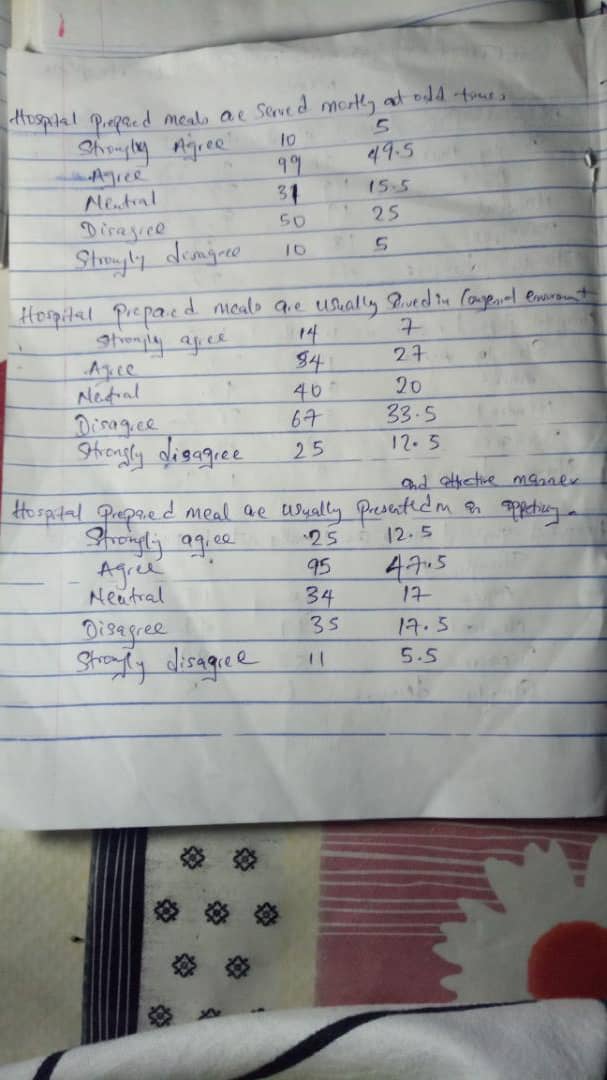 Hospital prepared meals are served mostly at odd times
Strongly Agree 10 5
Agree 99 49.5
Neutral 31 15.5
Disagree 50 25
Strongly disagree 10 5
Hospital prepared meals are usually Served in Congenial enviroment
Strongly agree 14 7
Agree 54 27
Neutral 40 20
Disagree 67 33.5
Strongly disagree 25 12.5
and effective manner
Hospital prepared meal are usually presented in an appetizing
Strongly agree 25 12.5
Agree 95 47.5
Neutral 34 17
Disagree 35 17.5
Strongly disagree 11 5.5